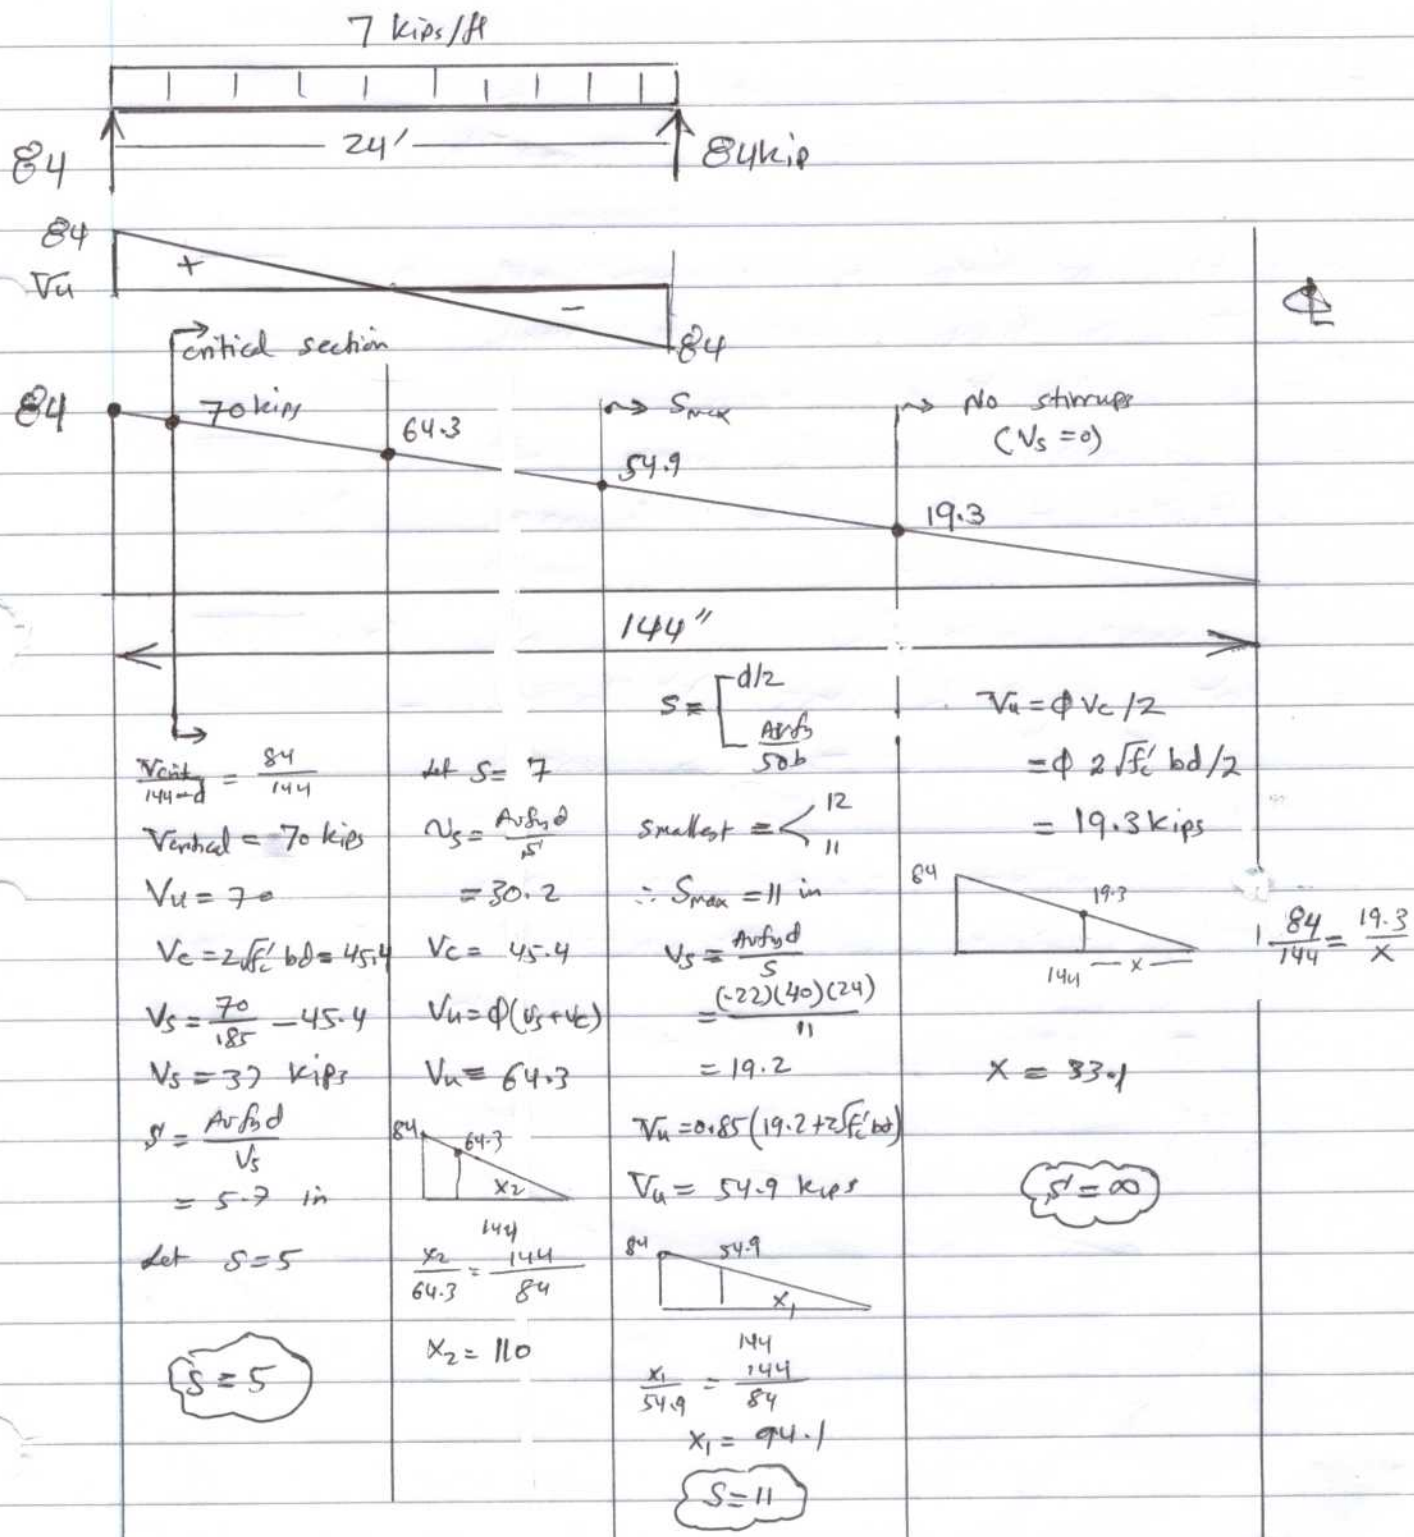 7 kips/ft
24'
84
84 kip
84
Vu
+
-
84
℄
critical section
84
70 kips
64.3
Smax
54.9
No stirrups
(Vs = 0)
19.3
144"
Vcrit / 144-d = 84 / 144
Vcritical = 70 kips
Vu = 70
Vc = 2√f'c bd = 45.4
Vs = 70 / .85 - 45.4
Vs = 37 kips
S = Av fy d / Vs
= 5.7 in
Let S = 5
S = 5
Let S = 7
Vs = Av fy d / S
= 30.2
Vc = 45.4
Vu = φ(Vs + Vc)
Vu = 64.3
84
64.3
x2
144
x2 / 64.3 = 144 / 84
x2 = 110
S = d/2
Av fy / 50b
Smallest = 12
11
∴ Smax = 11 in
Vs = Av fy d / S
= (.22)(40)(24) / 11
= 19.2
Vu = 0.85(19.2 + 2√f'c bd)
Vu = 54.9 kips
84
54.9
x1
144
x1 / 54.9 = 144 / 84
x1 = 94.1
S = 11
Vu = φ Vc / 2
= φ 2√f'c bd / 2
= 19.3 kips
84
19.3
144
x
84 / 144 = 19.3 / x
x = 33.1
S = ∞